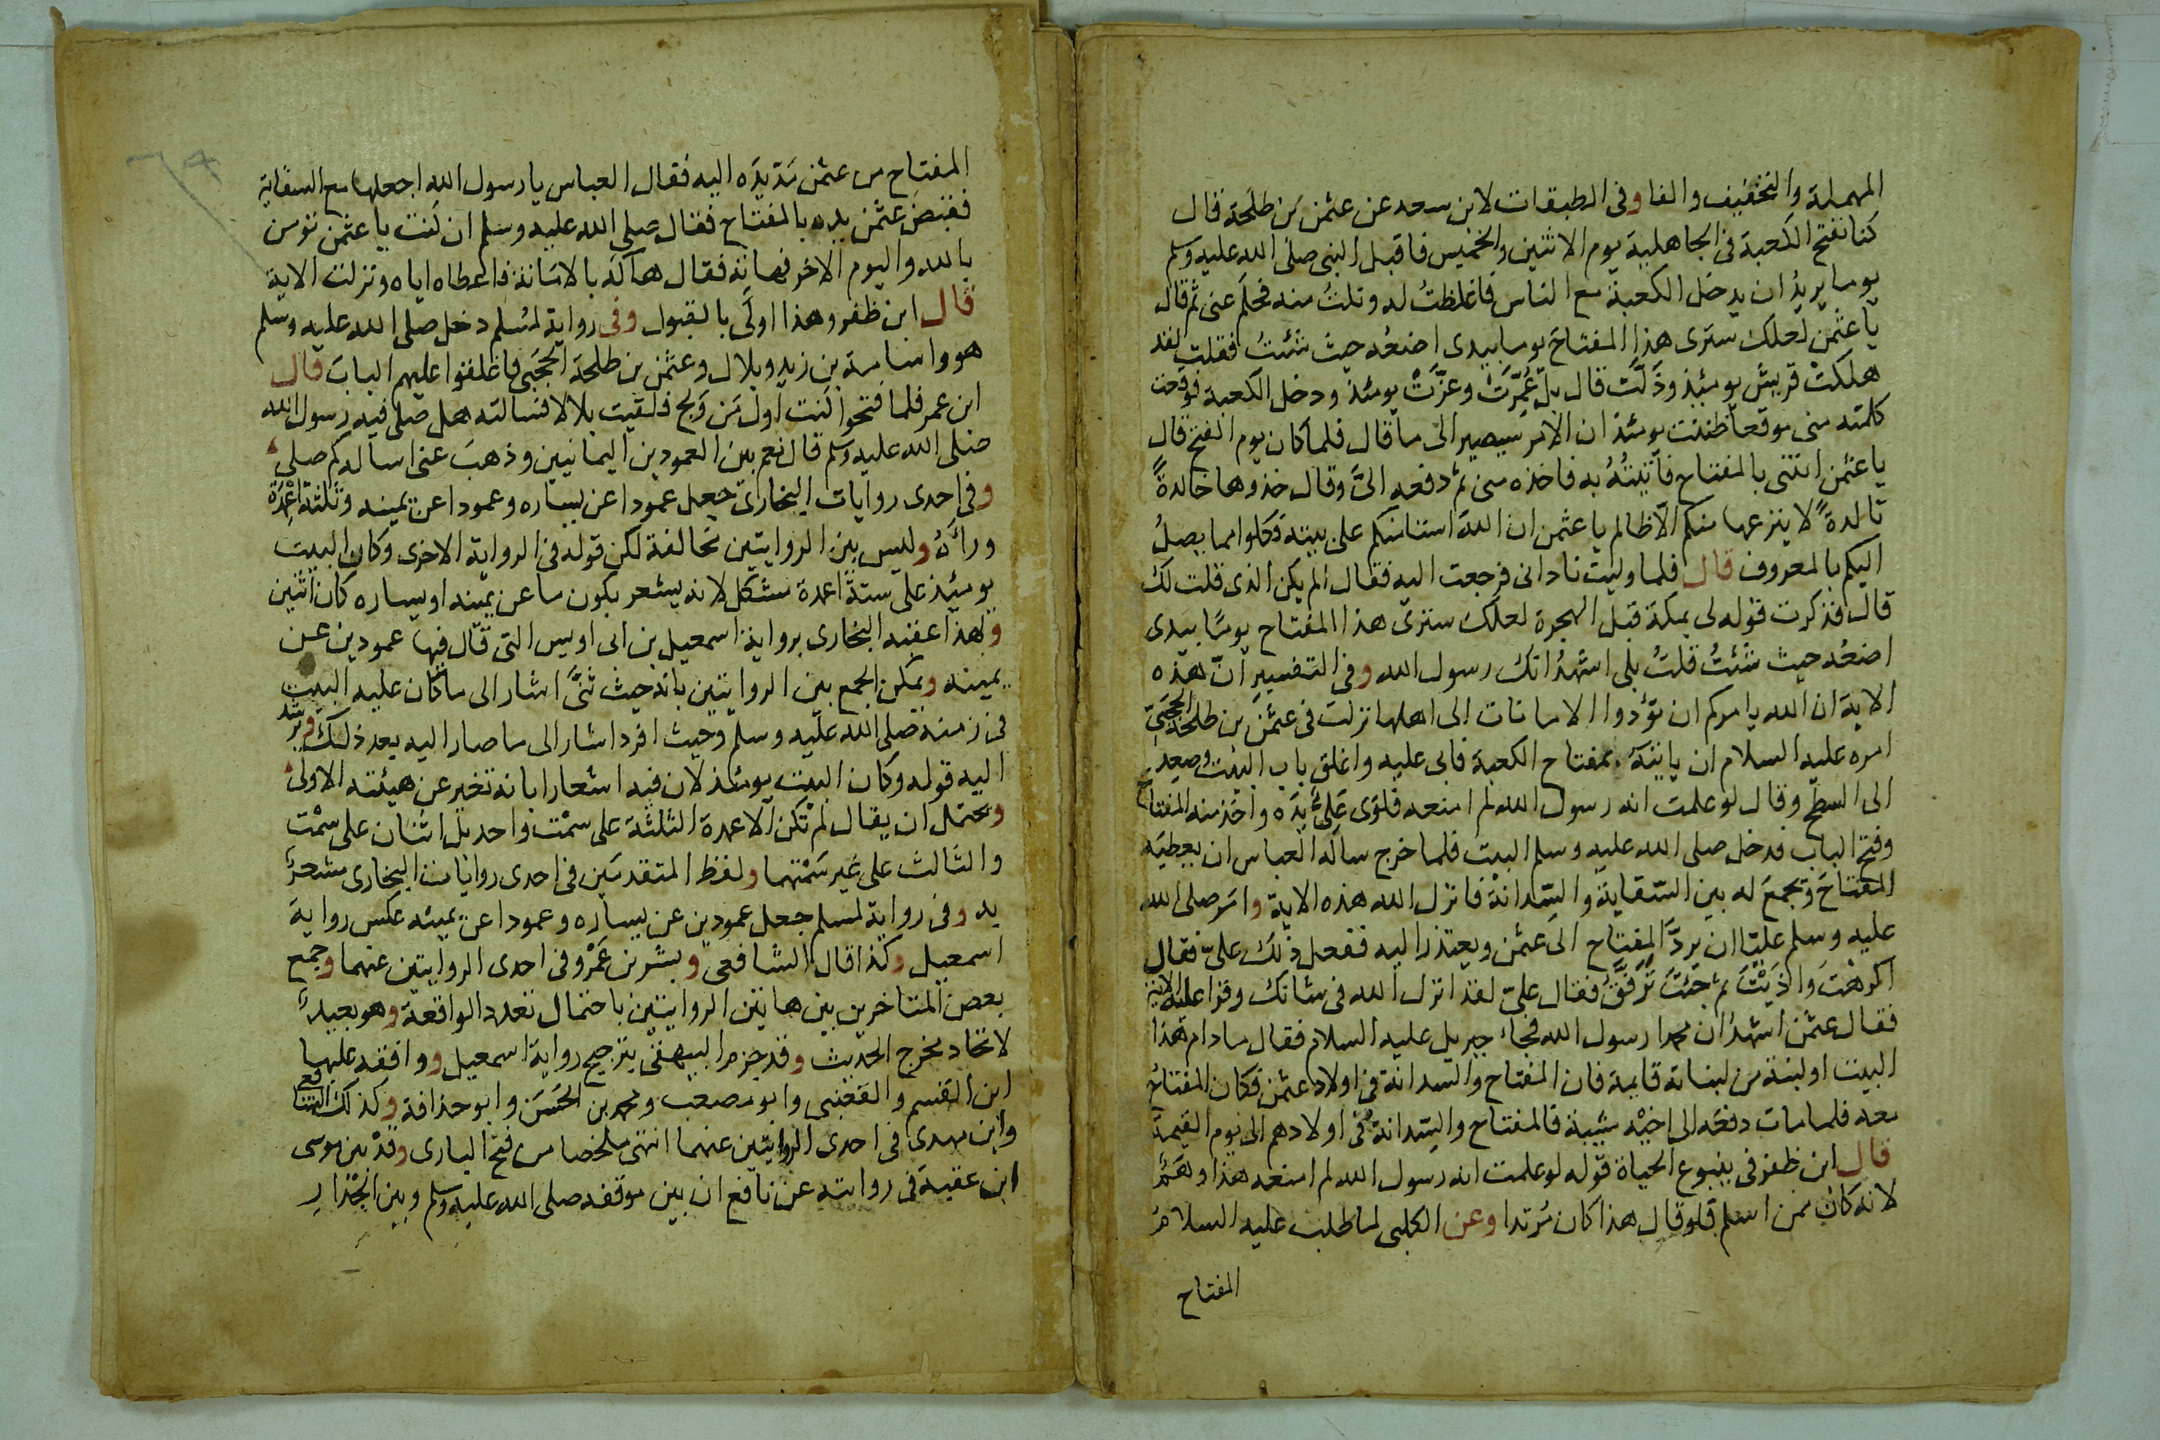 المهملة والتخفيف والفا وفى الطبقات لابن سعد عن عثمن بن طلحة قال
كنا نفتح الكعبة فى الجاهلية يوم الاثنين والخميس فاقبل النبى صلى الله عليه وسلم
يوما يريد ان يدخل الكعبة مع الناس فاغلظتُ له ونلتُ منه فحلم عنى ثم قال
يا عثمن لعلك سترى هذا المفتاح يوما بيدى اضعُه حيث شئتُ فقلت لقد
هلكتْ قريش يومئذ وذَلَّت قال بل عُمِّرَتْ وعزَّتْ يومئذ ودخل الكعبة فوقعت
كلمته منى موقعا ظننت يومئذ ان الامر سيصير الى ما قال فلما كان يوم الفتح قال
يا عثمن ائتنى بالمفتاح فأتيتُهُ به فاخذه منى ثم دفعه الىَّ وقال خذوها خالدةً
تالدةً لا ينزعها منكم الّا ظالم يا عثمن ان الله استامنكم على بيته فكلوا مما يصلُ
اليكم بالمعروف قال فلما وليت نادانى فرجعت اليه فقال الم يكن الذى قلت لك
قال فذكرت قوله لى بمكة قبل الهجرة لعلك سترى هذا المفتاح يومًا بيدى
اضعُه حيث شئتُ قلتُ بلى اشهدُ انك رسول الله وفى التفسير انّ هذه
الاية ان الله يامركم ان تؤدوا الامانات الى اهلها نزلت فى عثمن بن طلحة الحجبىّ
امره عليه السلام ان ياتيَهُ بمفتاح الكعبة فابى عليه واغلق باب البيت وصعد
الى السطح وقال لو علمت انه رسول الله لم امنعه فلوى عَلِىٌّ يدَه واخذ منه المفتاح
وفتح الباب فدخل صلى الله عليه وسلم البيت فلما خرج ساله العباس ان يعطيَه
المفتاحَ ويجمعَ له بين السّقاية والسّدانة فانزل الله هذه الاية وامَر صلى الله
عليه وسلم عليّا ان يردَّ المفتاح الى عثمن ويعتذر اليه ففعل ذلك علىّ فقال
اكرهتَ واٰذيْتَ ثم جئتَ تَرَفَّقُ فقال علىّ لقد انزل الله فى شانك وقرا عليه الاية
فقال عثمن اشهدُ ان محمدا رسول الله فجاء جبريل عليه السلام فقال ما دام هذا
البيت او لبنة من لبناته قايمة فان المفتاح والسدانة فى اولاد عثمن فكان المفتاحُ
معه فلما مات دفعَه الى اخيْه شيبة فالمفتاح والسّدانةُ فى اولادهم الى يوم القيمة
قال ابن ظفر فى ينبوع الحياة قوله لو علمت انه رسول الله لم امنعه هذا وهَمٌ
لانه كان ممن اسلم فلو قال هذا كان مُرتدا وعن الكلبى لما طلب عليه السلامُ
المفتاح
المفتاح من عثمن مَدّ يدَه اليه فقال العباس يا رسول الله اجعلها مع السقاية
فقبضَ عثمن يده بالمفتاح فقال صلى الله عليه وسلم ان كنت يا عثمن تؤمن
بالله واليوم الاخر فهاتِه فقال هاكَه بالامَانة فاعطاه اياه ونزلت الاية
قال ابن ظفر وهذا اولَى بالقبول وفى رواية لمُسلم دخل صلى الله عليه وسلم
هو واسامة بن زيد وبلال وعثمن بن طلحة الحجَبى فاغلقوا عليهم البابَ قال
ابن عمر فلما فتحوا كنت اول مَن وَلج فلقيت بلالا فسالته هل صلى فيه رسول الله
صلى الله عليه وسلم قال نعم بين العمودين اليمانيين وذهبَ عنى اساله كم صلى
وفى احدى روايات البخارى جعل عمودا عن يساره وعمودا عن يمينه وثلثة اعْمِدَة
ورآءَهُ وليس بين الروايتين مخالفة لكن قوله فى الرواية الاخرى وكان البيت
يومئذ على ستة اعمدة مشكل لانه يشعر بكون ما عن يمينه او يساره كان اثنين
ولهذا عقبه البخارى برواية اسمعيل بن ابى اويس التى قال فيها عمودين عن
يمينه ويمكن الجمع بين الروايتين بانه حيث ثنَّى اشار الى ما كان عليه البيت
فى زمنه صلى الله عليه وسلم وحيث افرد اشار الى ما صار اليه بعد ذلك ويرشد
اليه قوله وكان البيت يومئذ لان فيه اشعارا بانه تغير عن هيئته الاولى
ويحتمل ان يقال لم تكن الاعمدة الثلثة على سمْت واحد بل اثنان على سمْت
والثالث على غير سَمْتهما ولفظ المتقدمَين فى احدى روايات البخارى مشعرٌ
به وفى رواية لمسلم جعل عمودين عن يساره وعمودا عن يمينه عكس رواية
اسمعيل وكذا قال الشافعى وبشر بن عَمْرو فى احدى الروايتين عنهما وجمع
بعض المتاخرين بين هاتين الروايتين باحتمال تعدد الواقعة وهو بعيدٌ
لاتحاد مخرج الحديث وقد جزم البيهقى بترجيح رواية اسمعيل ووافقه عليها
ابن القسم والقعنبى وابو مصعب ومحمد بن الحَسَن وابو حذافة وكذلك الشافعى
وابن مهدى فى احدى الروايتين عنهما انتهى ملخصا من فتح البارى وقد بين موسى
ابن عقبة فى روايته عن نافع ان بين موقفه صلى الله عليه وسلم وبين الجْدار